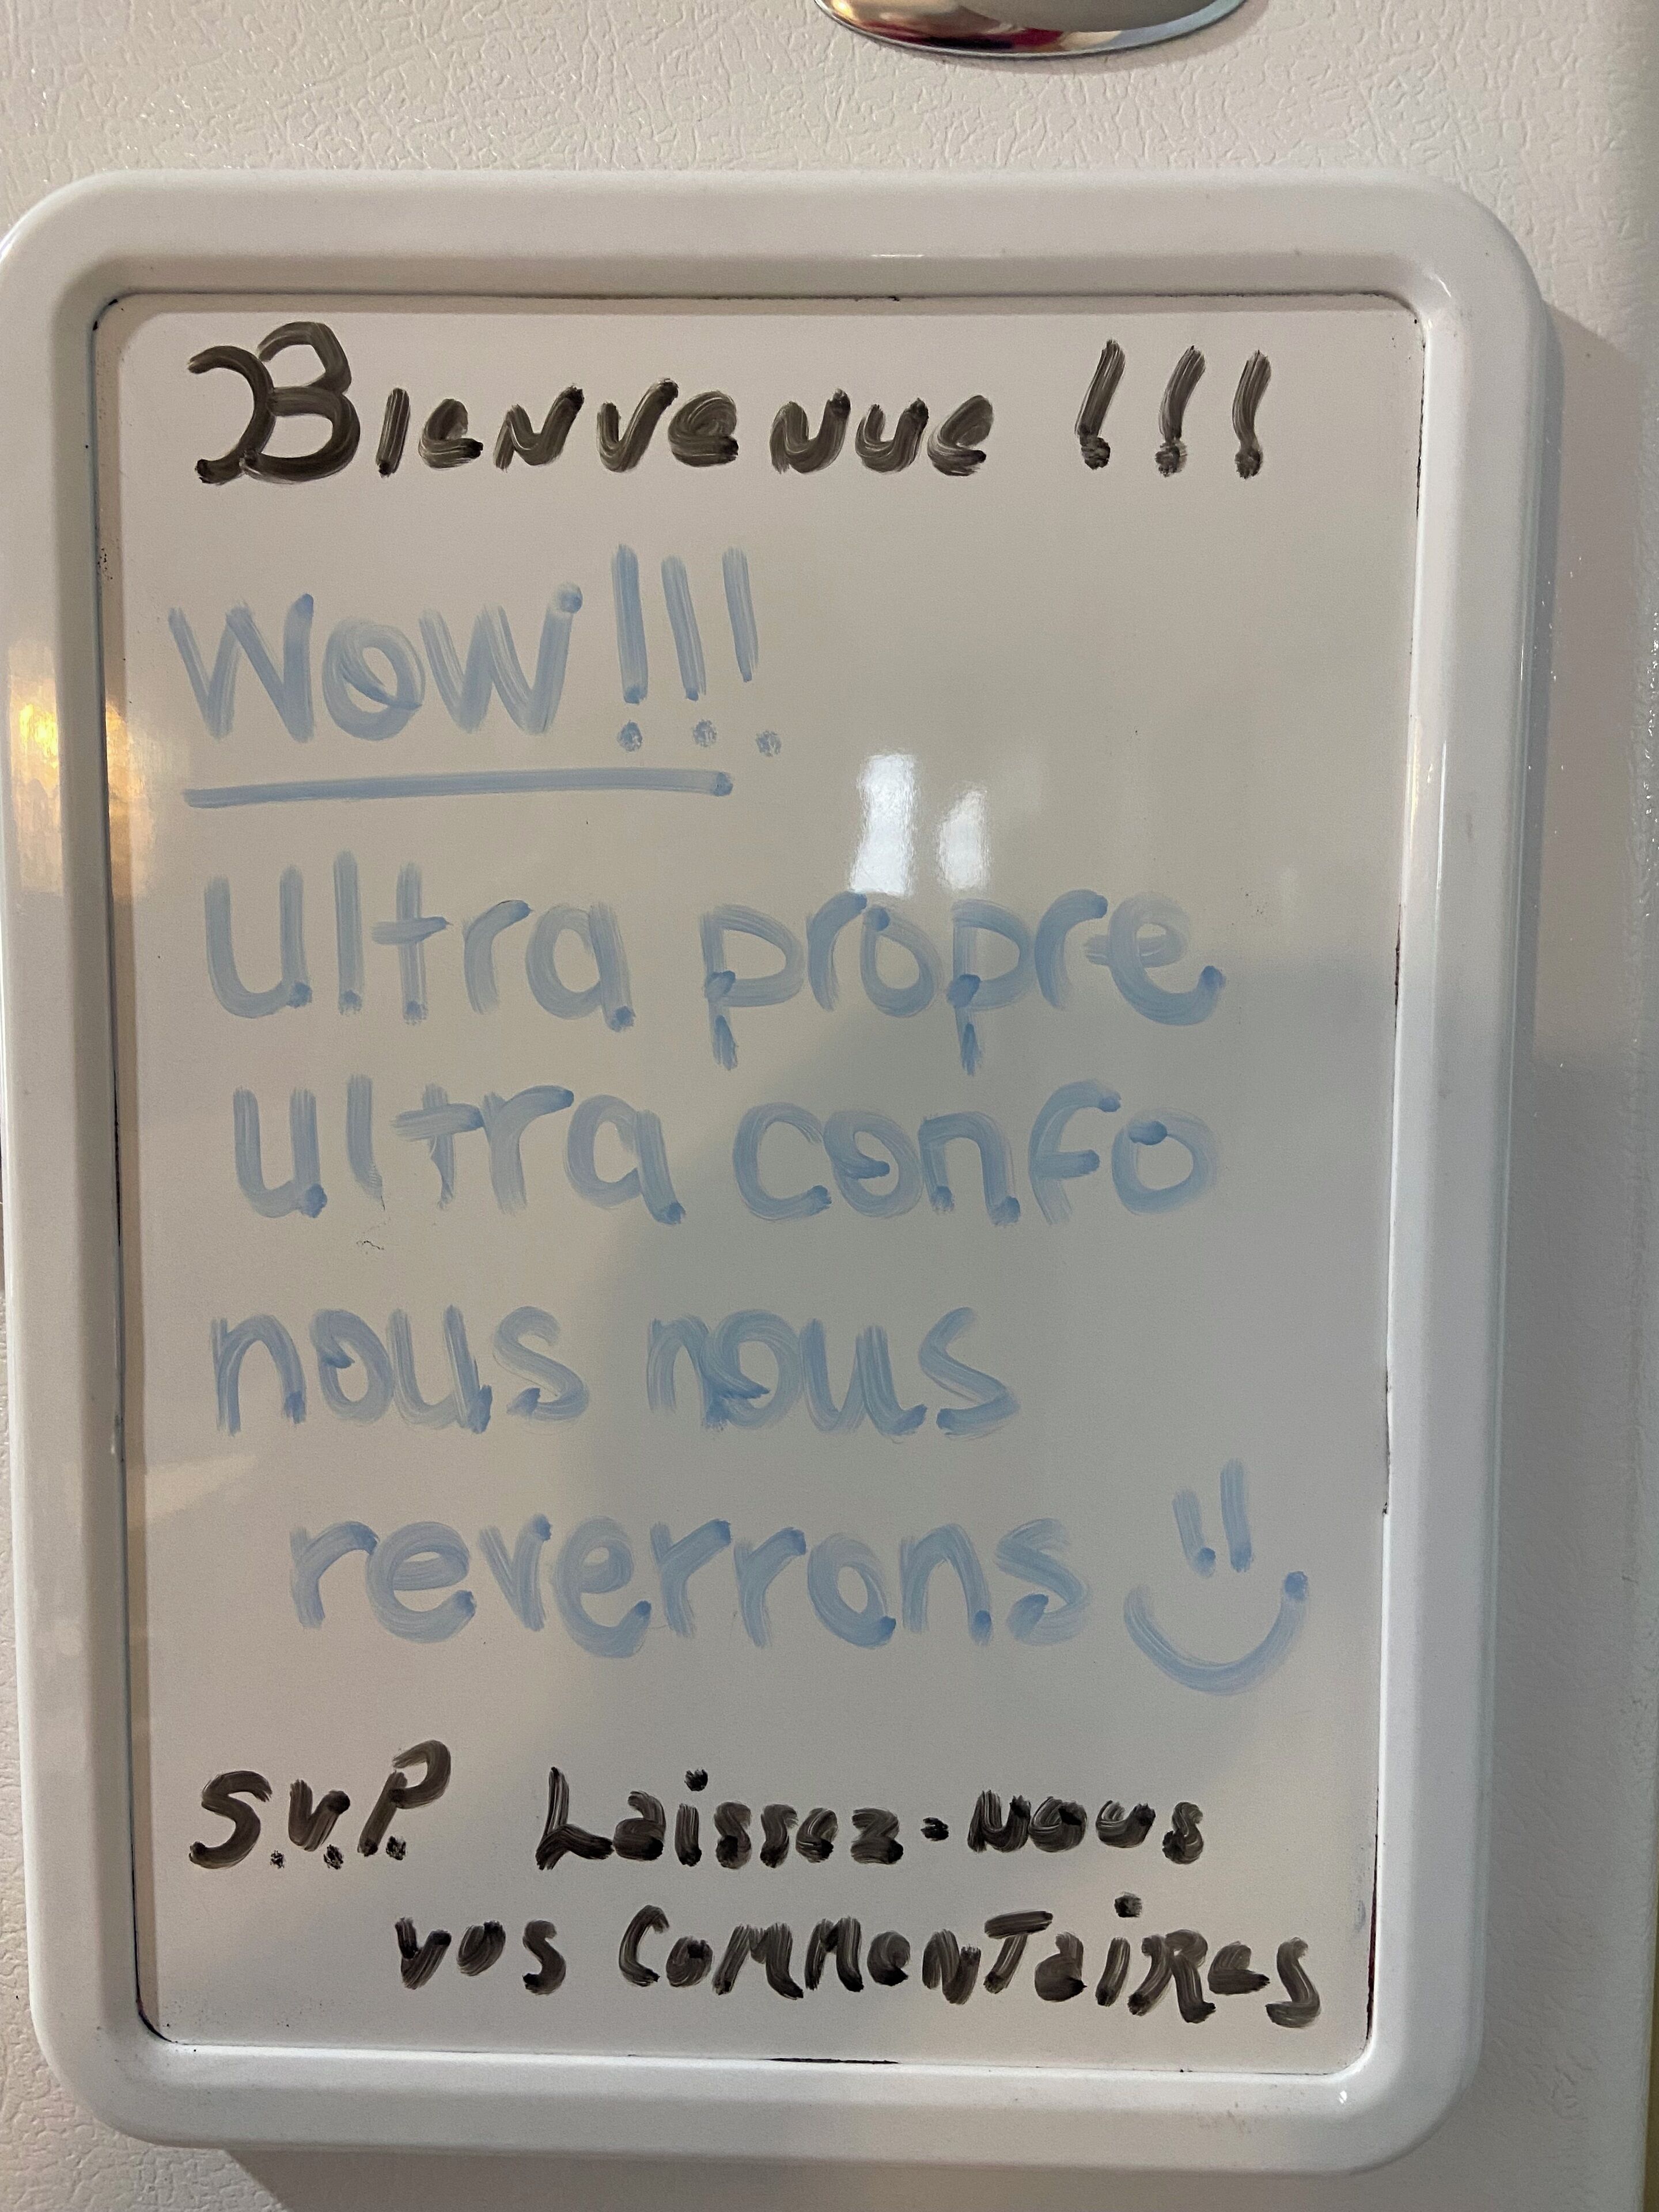 Bienvenue !!!
Wow!!!
Ultra propre
ultra confo
nous nous
reverrons
S.V.P. Laissez-nous
vos commentaires